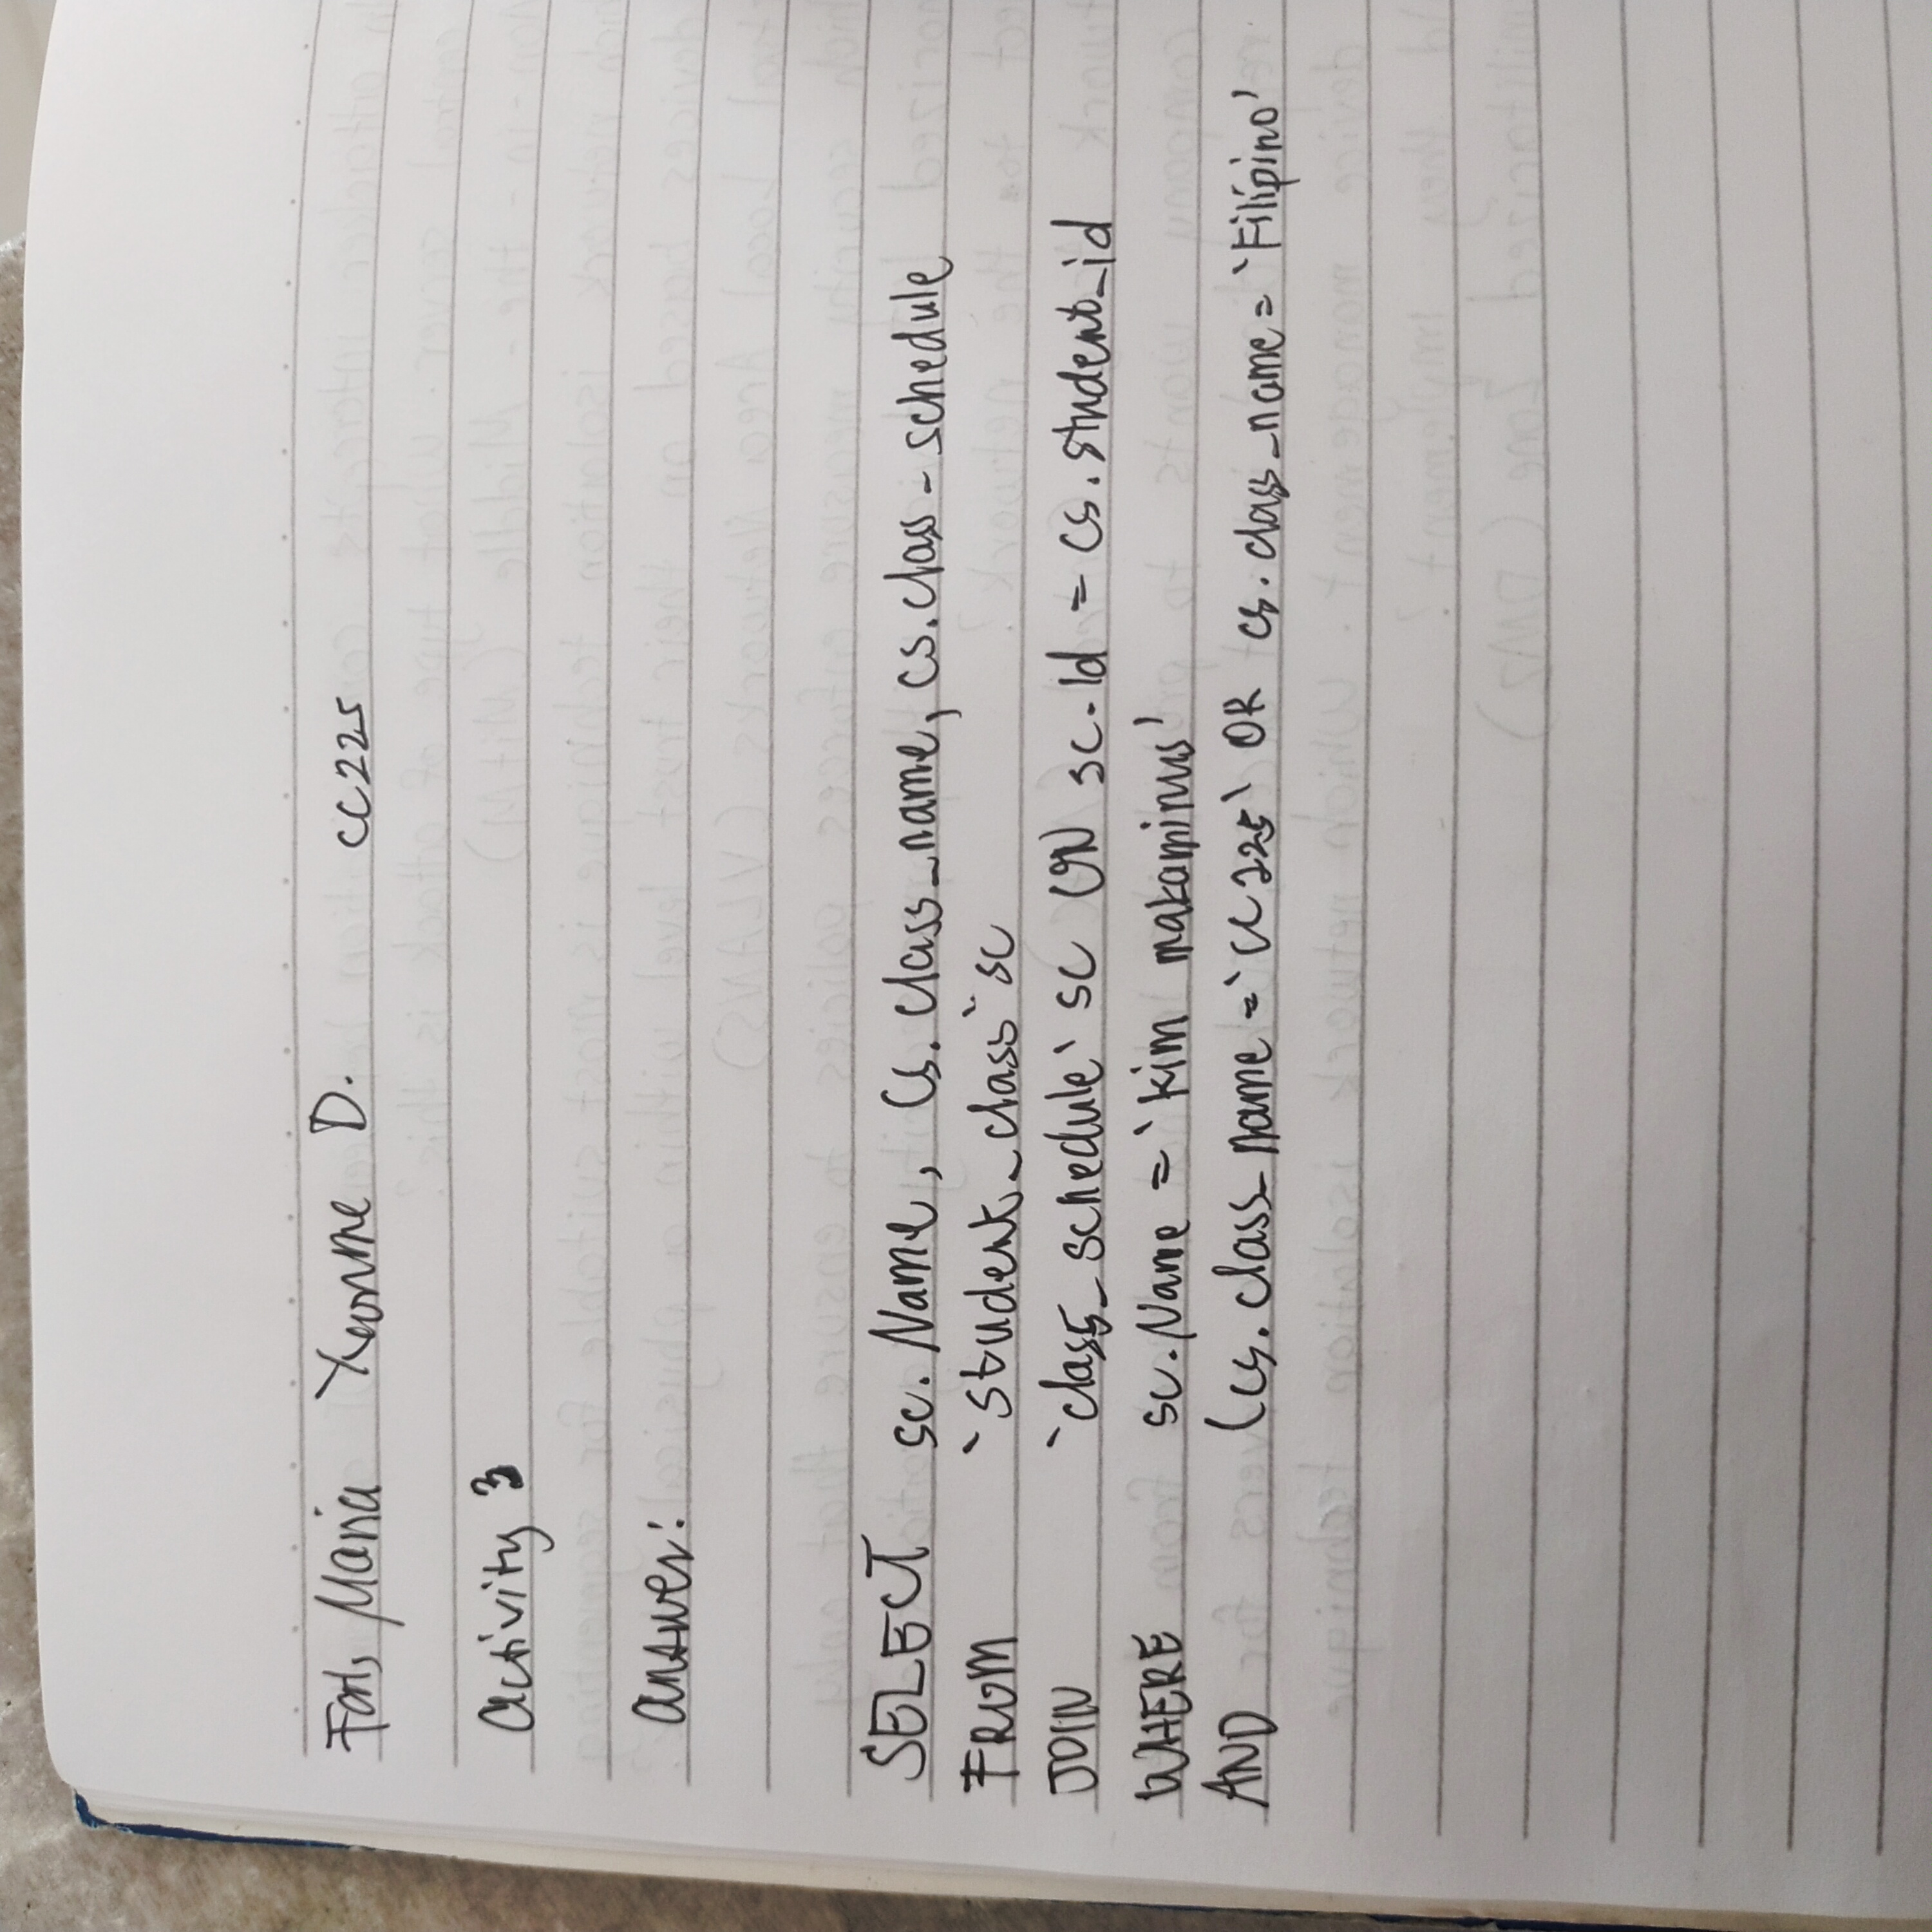 Maria Yvonne D. CC225
Activity 3
Answer:
SELECT sc.Name, Cs.class_name, cs.class_schedule
FROM `student_class` sc
JOIN `class_schedule` sc ON sc.Id = cs.student_id
WHERE sc.Name = 'kim makaminus'
AND (cs.class_name = 'CC225' OR cs.class_name = 'Filipino'